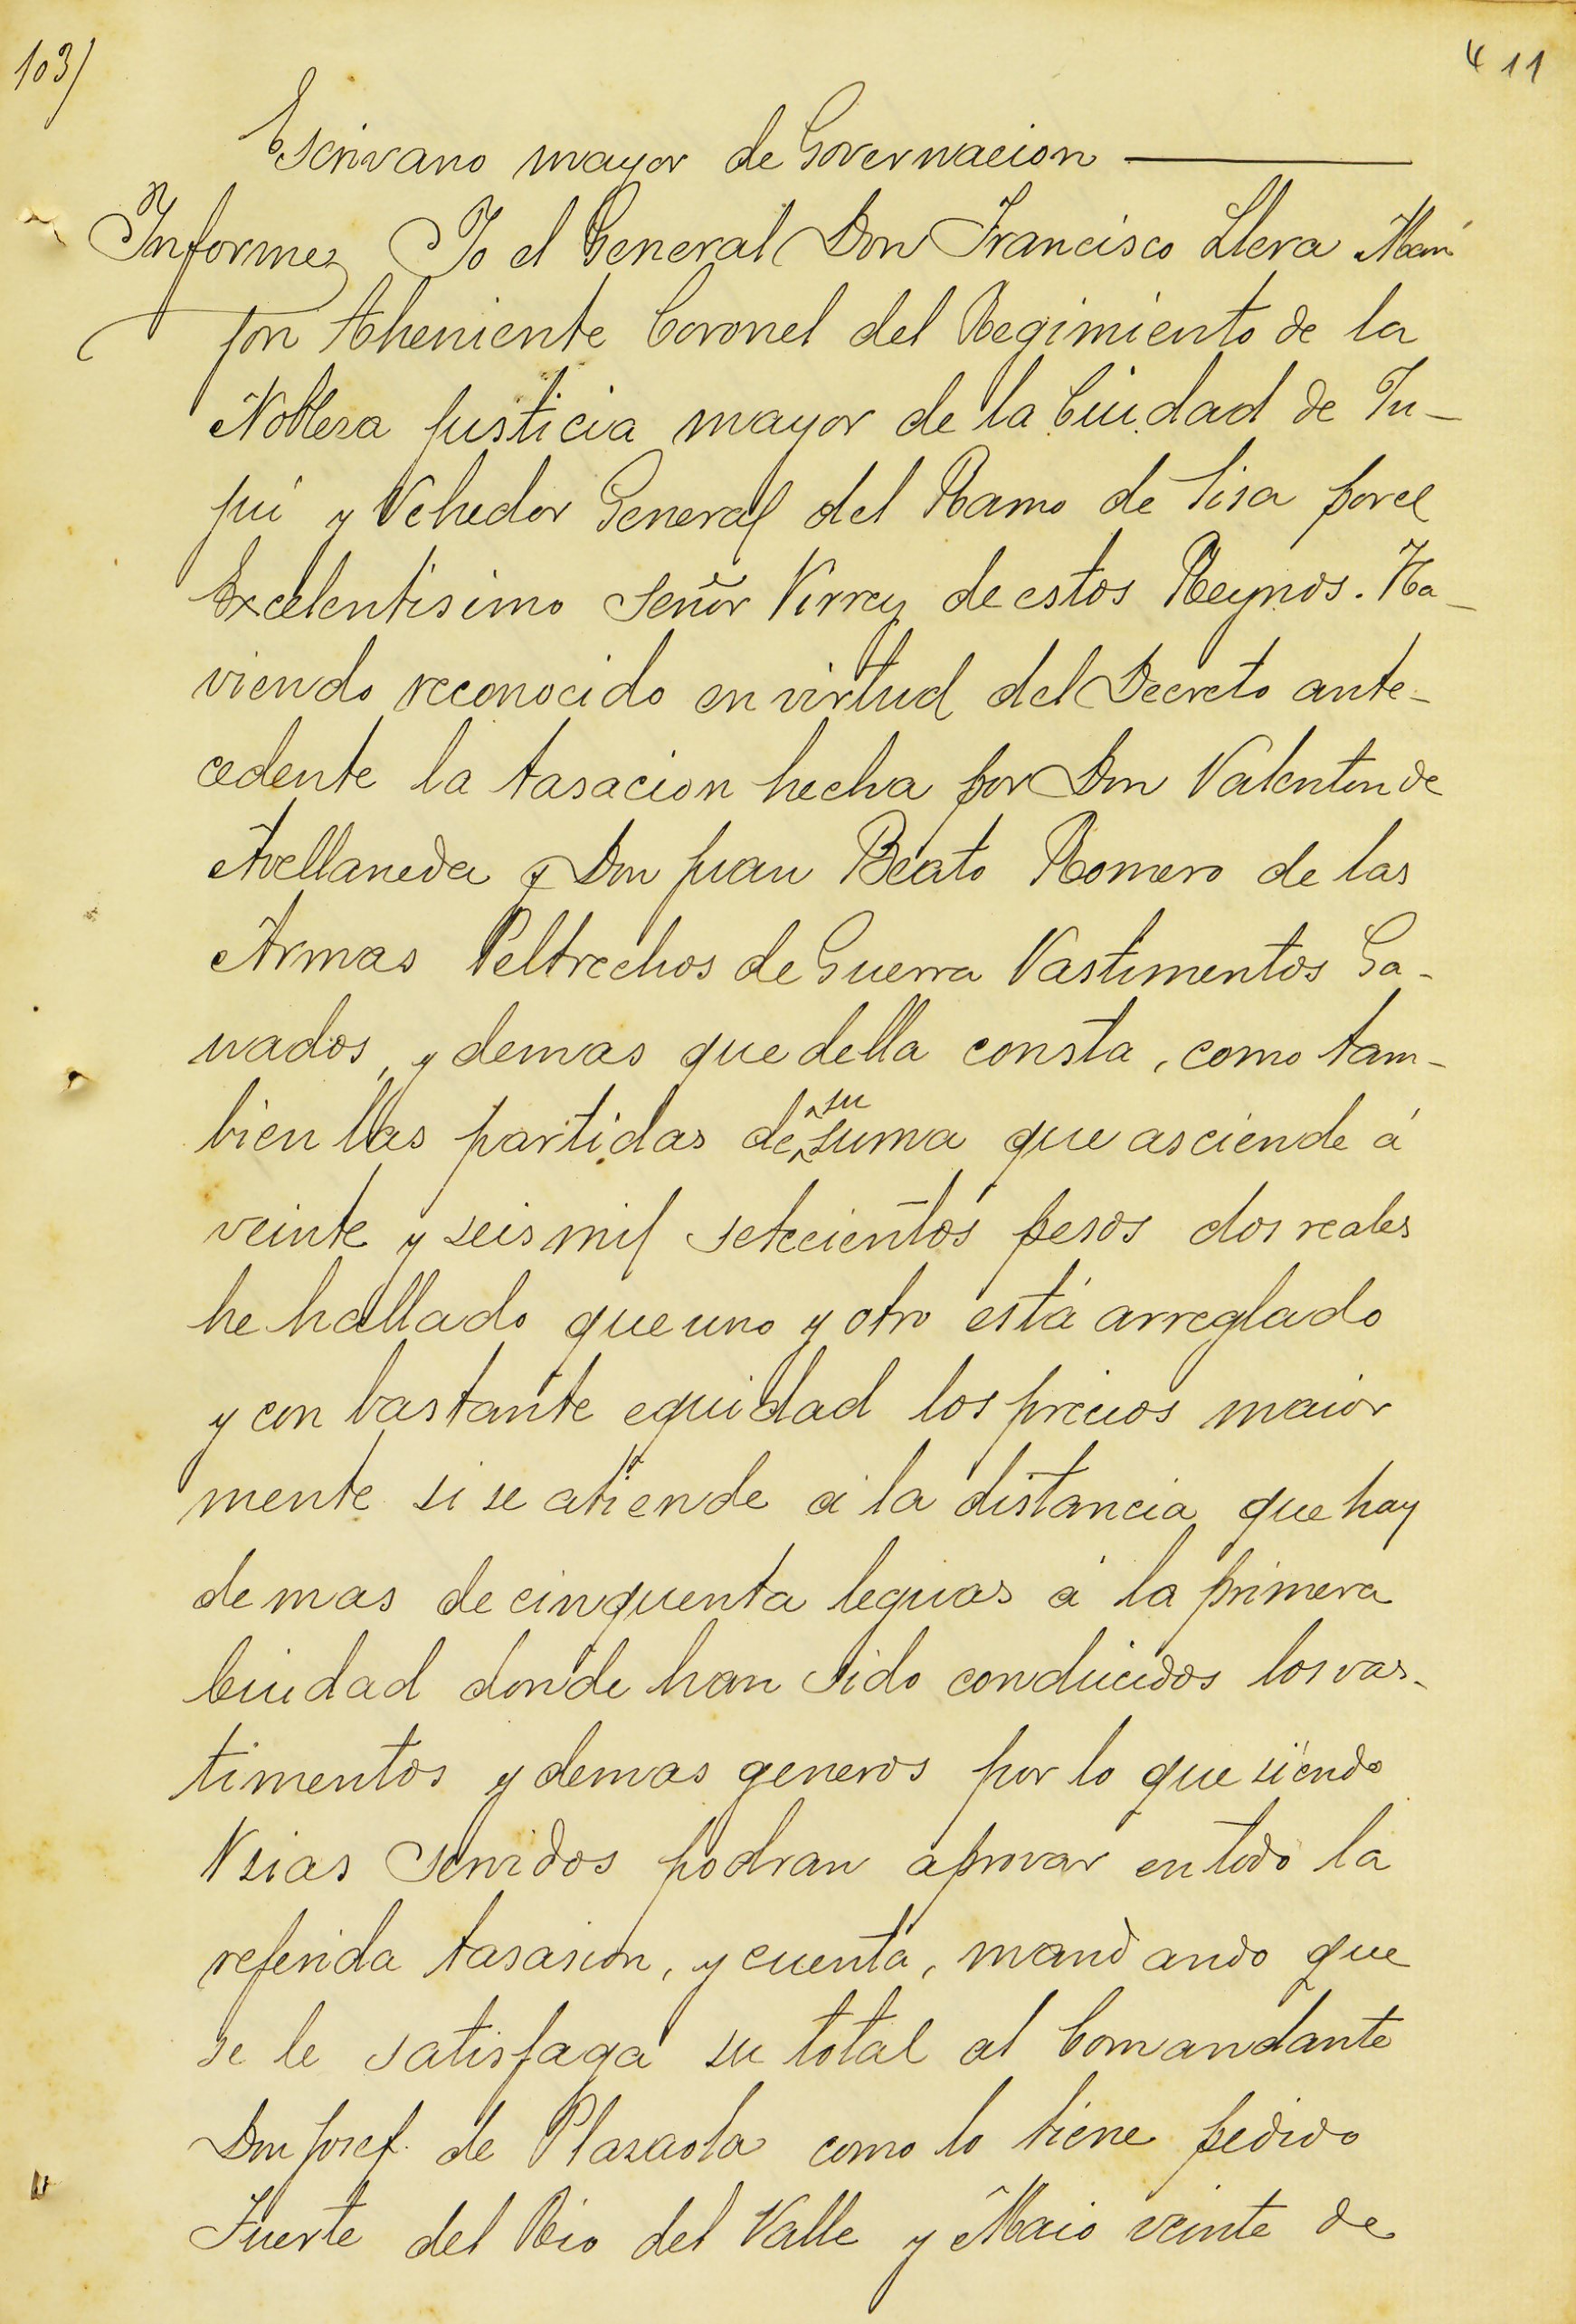 103/
411
Escrivano mayor de Governacion
Informe Yo el General Don Francisco Llera Mon
jon theniente Coronel del Regimiento de la
Nobleza justicia mayor de la Ciudad de Ju-
jui y Vehedor General del Ramo de Sisa por el
Excelentisimo Señor Virrey de estos Reynos. Ha-
viendo reconocido en virtud del Decreto ante-
cedente la tasacion hecha por Don Valentin de
Avellaneda y Don Juan Beato Romero de las
Armas Peltrechos de Guerra Vastimentos Ga-
nados, y demas que della consta, como tam-
bien las partidas de su suma que asciende á
veinte y seis mil setecientos pesos dos reales
he hallado que uno y otro está arreglado
y con bastante equidad los precios maior
mente si se atiende á la distancia que hay
de mas de cinquenta leguas á la primera
Ciudad donde han sido conducidos los vas-
timentos y demas generos por lo que siendo
Vsias servidos podran aprovar en todo la
referida tasasion, y cuenta, mandando que
se le satisfaga su total al Comandante
Don Josef de Plazaola como lo tiene pedido
Fuerte del Rio del Valle y Maio veinte de